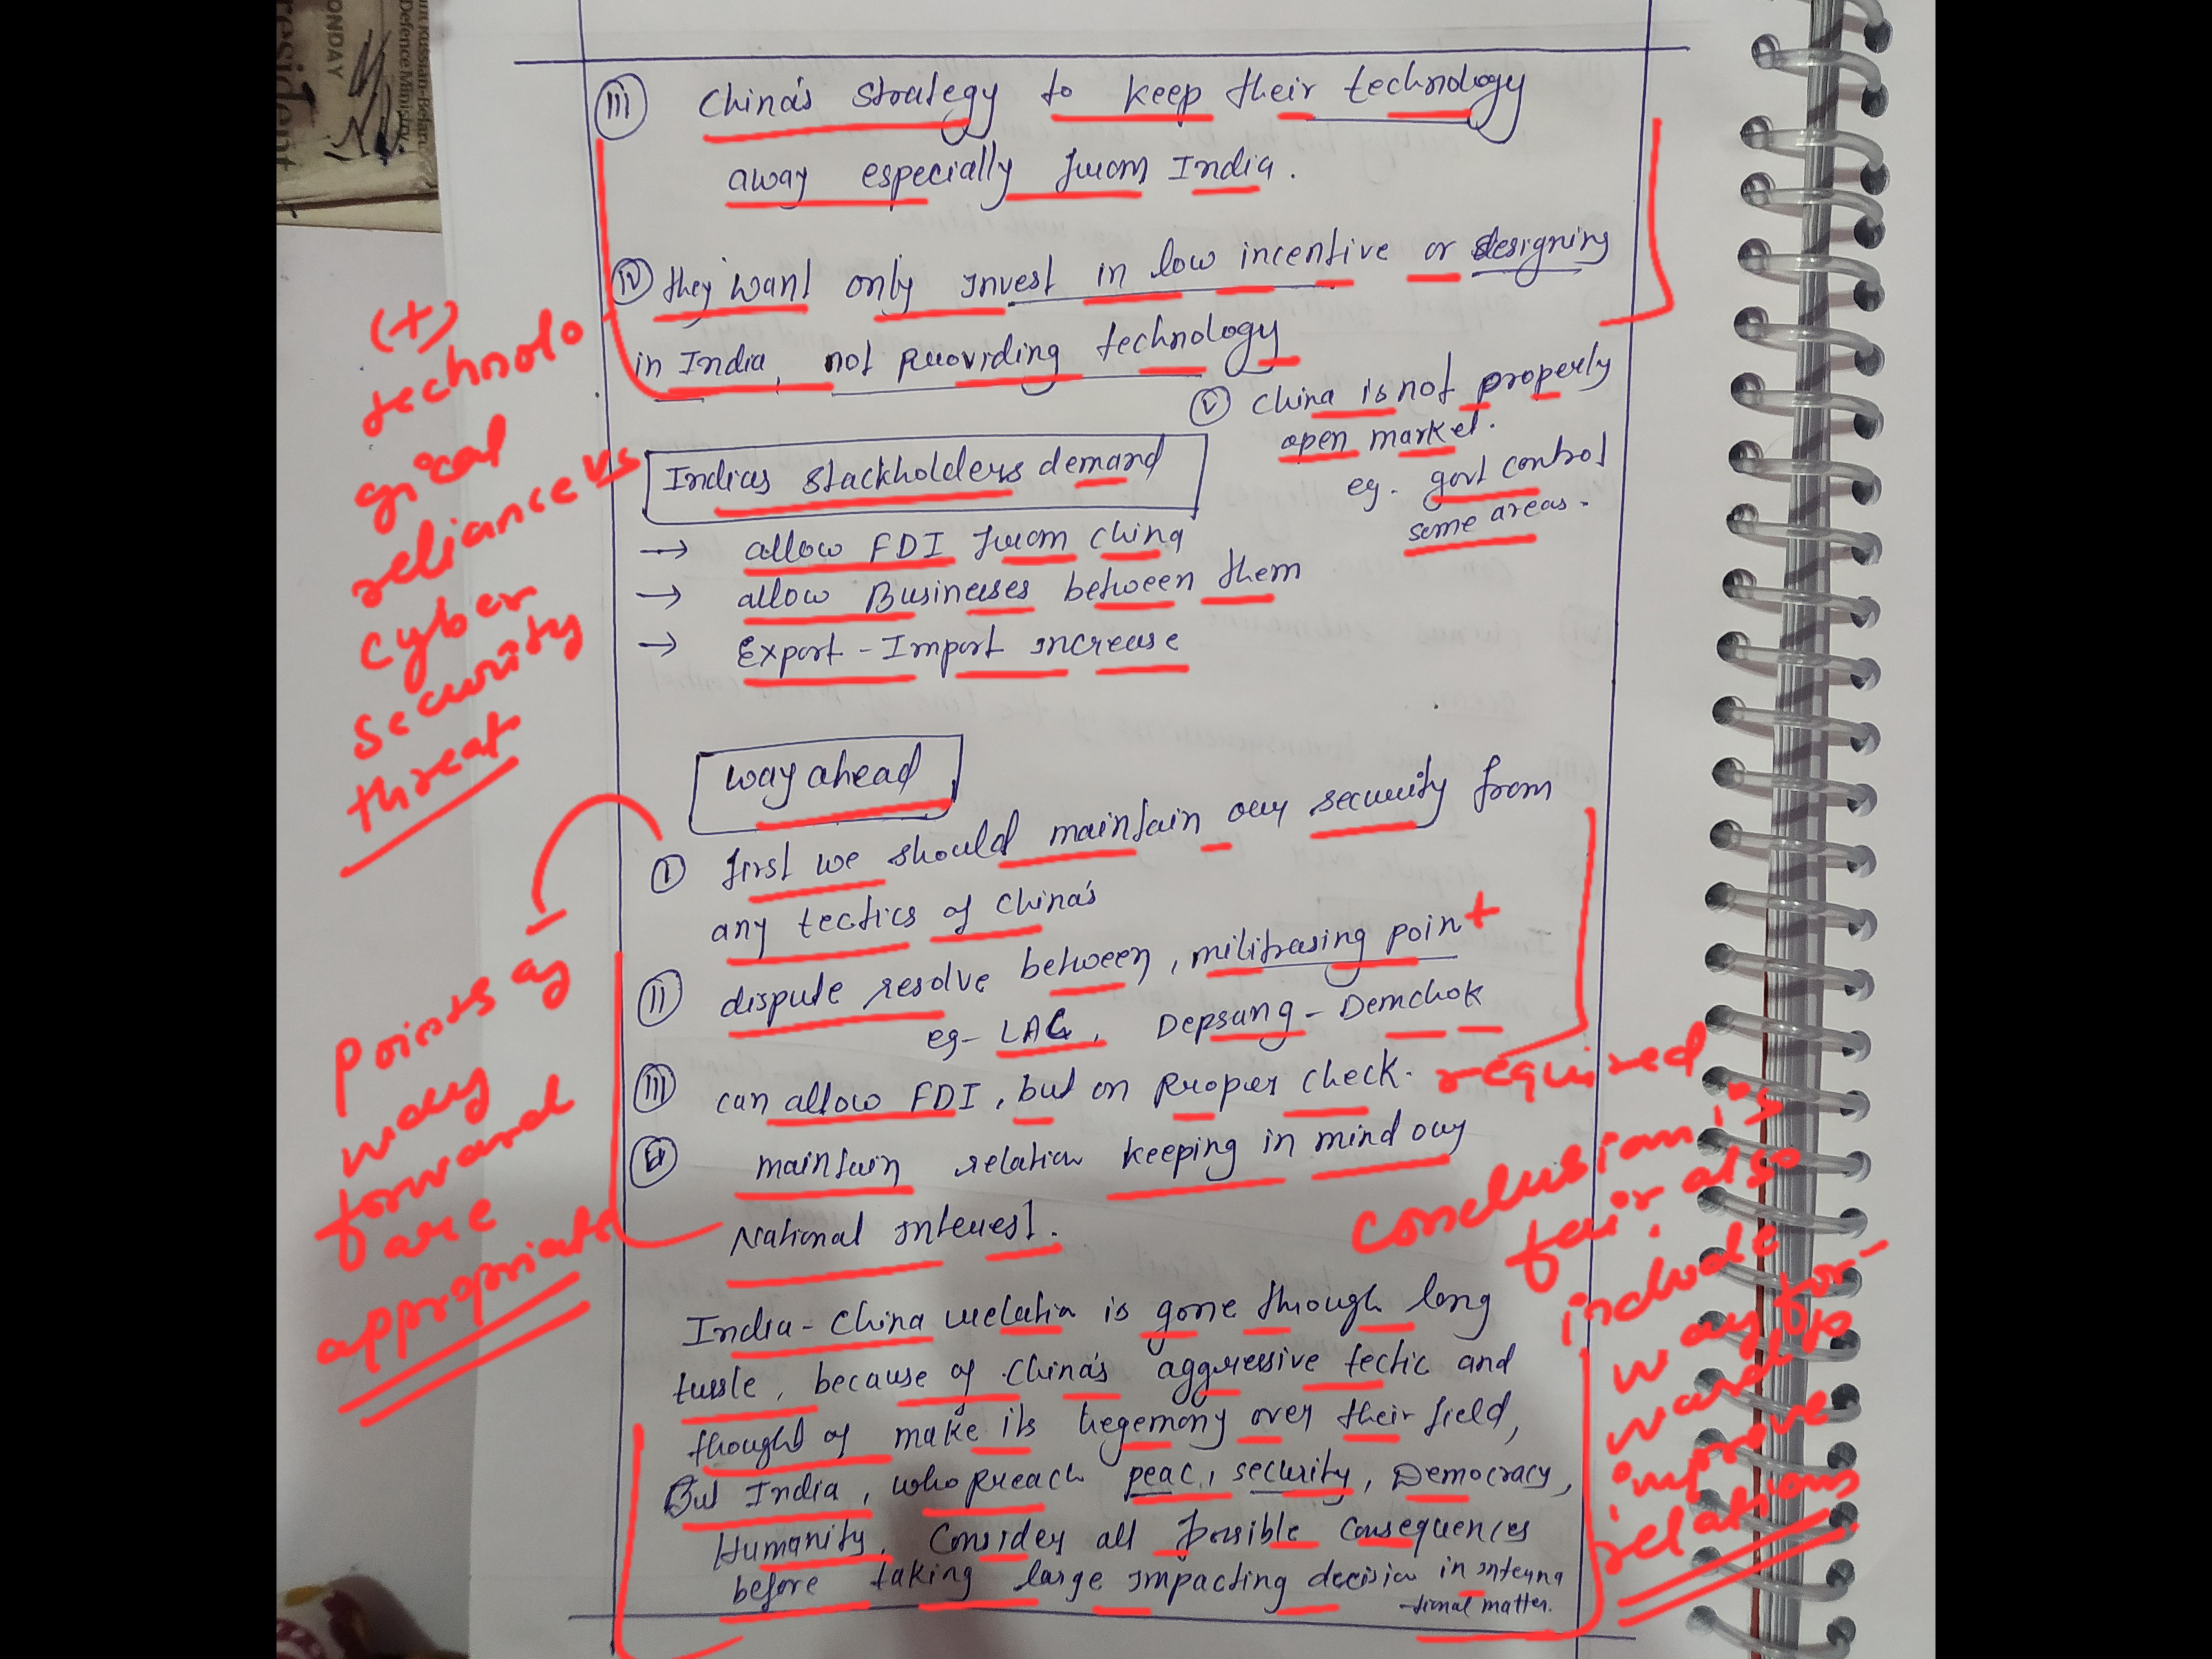 in Russian-Belaru
Defence Ministry
ONDAY
resident
(iii) China's strategy to keep their technology
away especially from India.
(iv) they want only invest in low incentive or designing
in India, not providing technology
(v) China is not properly
open market.
eg. govt control
some areas.
(+)
technolo
gical
reliance vs
cyber
security
threat
Indias stackholders demand
→ allow FDI from China
→ allow Businesses between them
→ Export - Import increase
way ahead
(i) first we should maintain our security from
any tectics of China's
(ii) dispute resolve between, militrasing point
eg- LAC, Depsang - Demchok
(iii) can allow FDI, but on proper check. required
(iv) maintain relation keeping in mind our
National interest.
Points as
way
forward
are
appropriate
India - China relation is gone through long
tussle, because of China's aggressive tectic and
thought of make its hegemony over their field,
But India, who preach peac, security, Democracy,
Humanity, Consider all possible consequences
before taking large impacting decision in interna
-tional matter.
conclusion is
fair also
include
way for-
ward to
improve
relations.